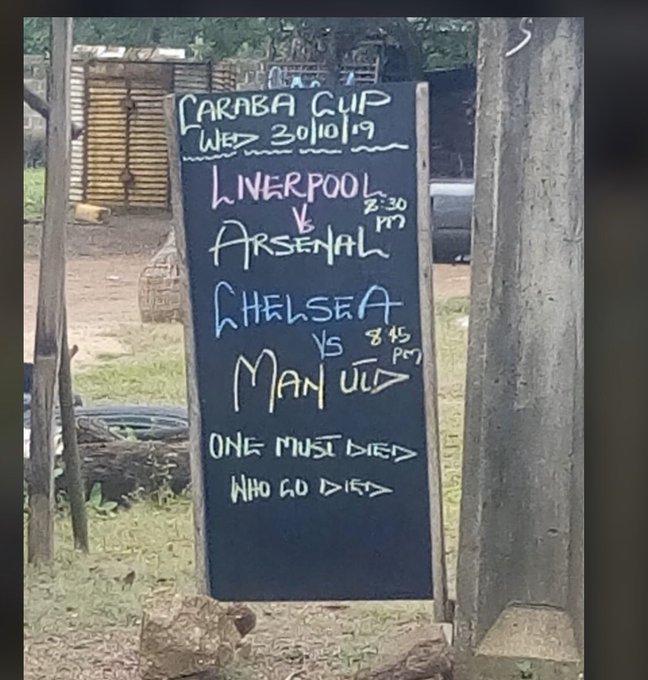 CARABA CUP
WED 30/10/19
LIVERPOOL
VS 8:30 PM
ARSENAL
CHELSEA
VS 8 45 PM
MAN UTD
ONE MUST DIED
WHO GO DIED